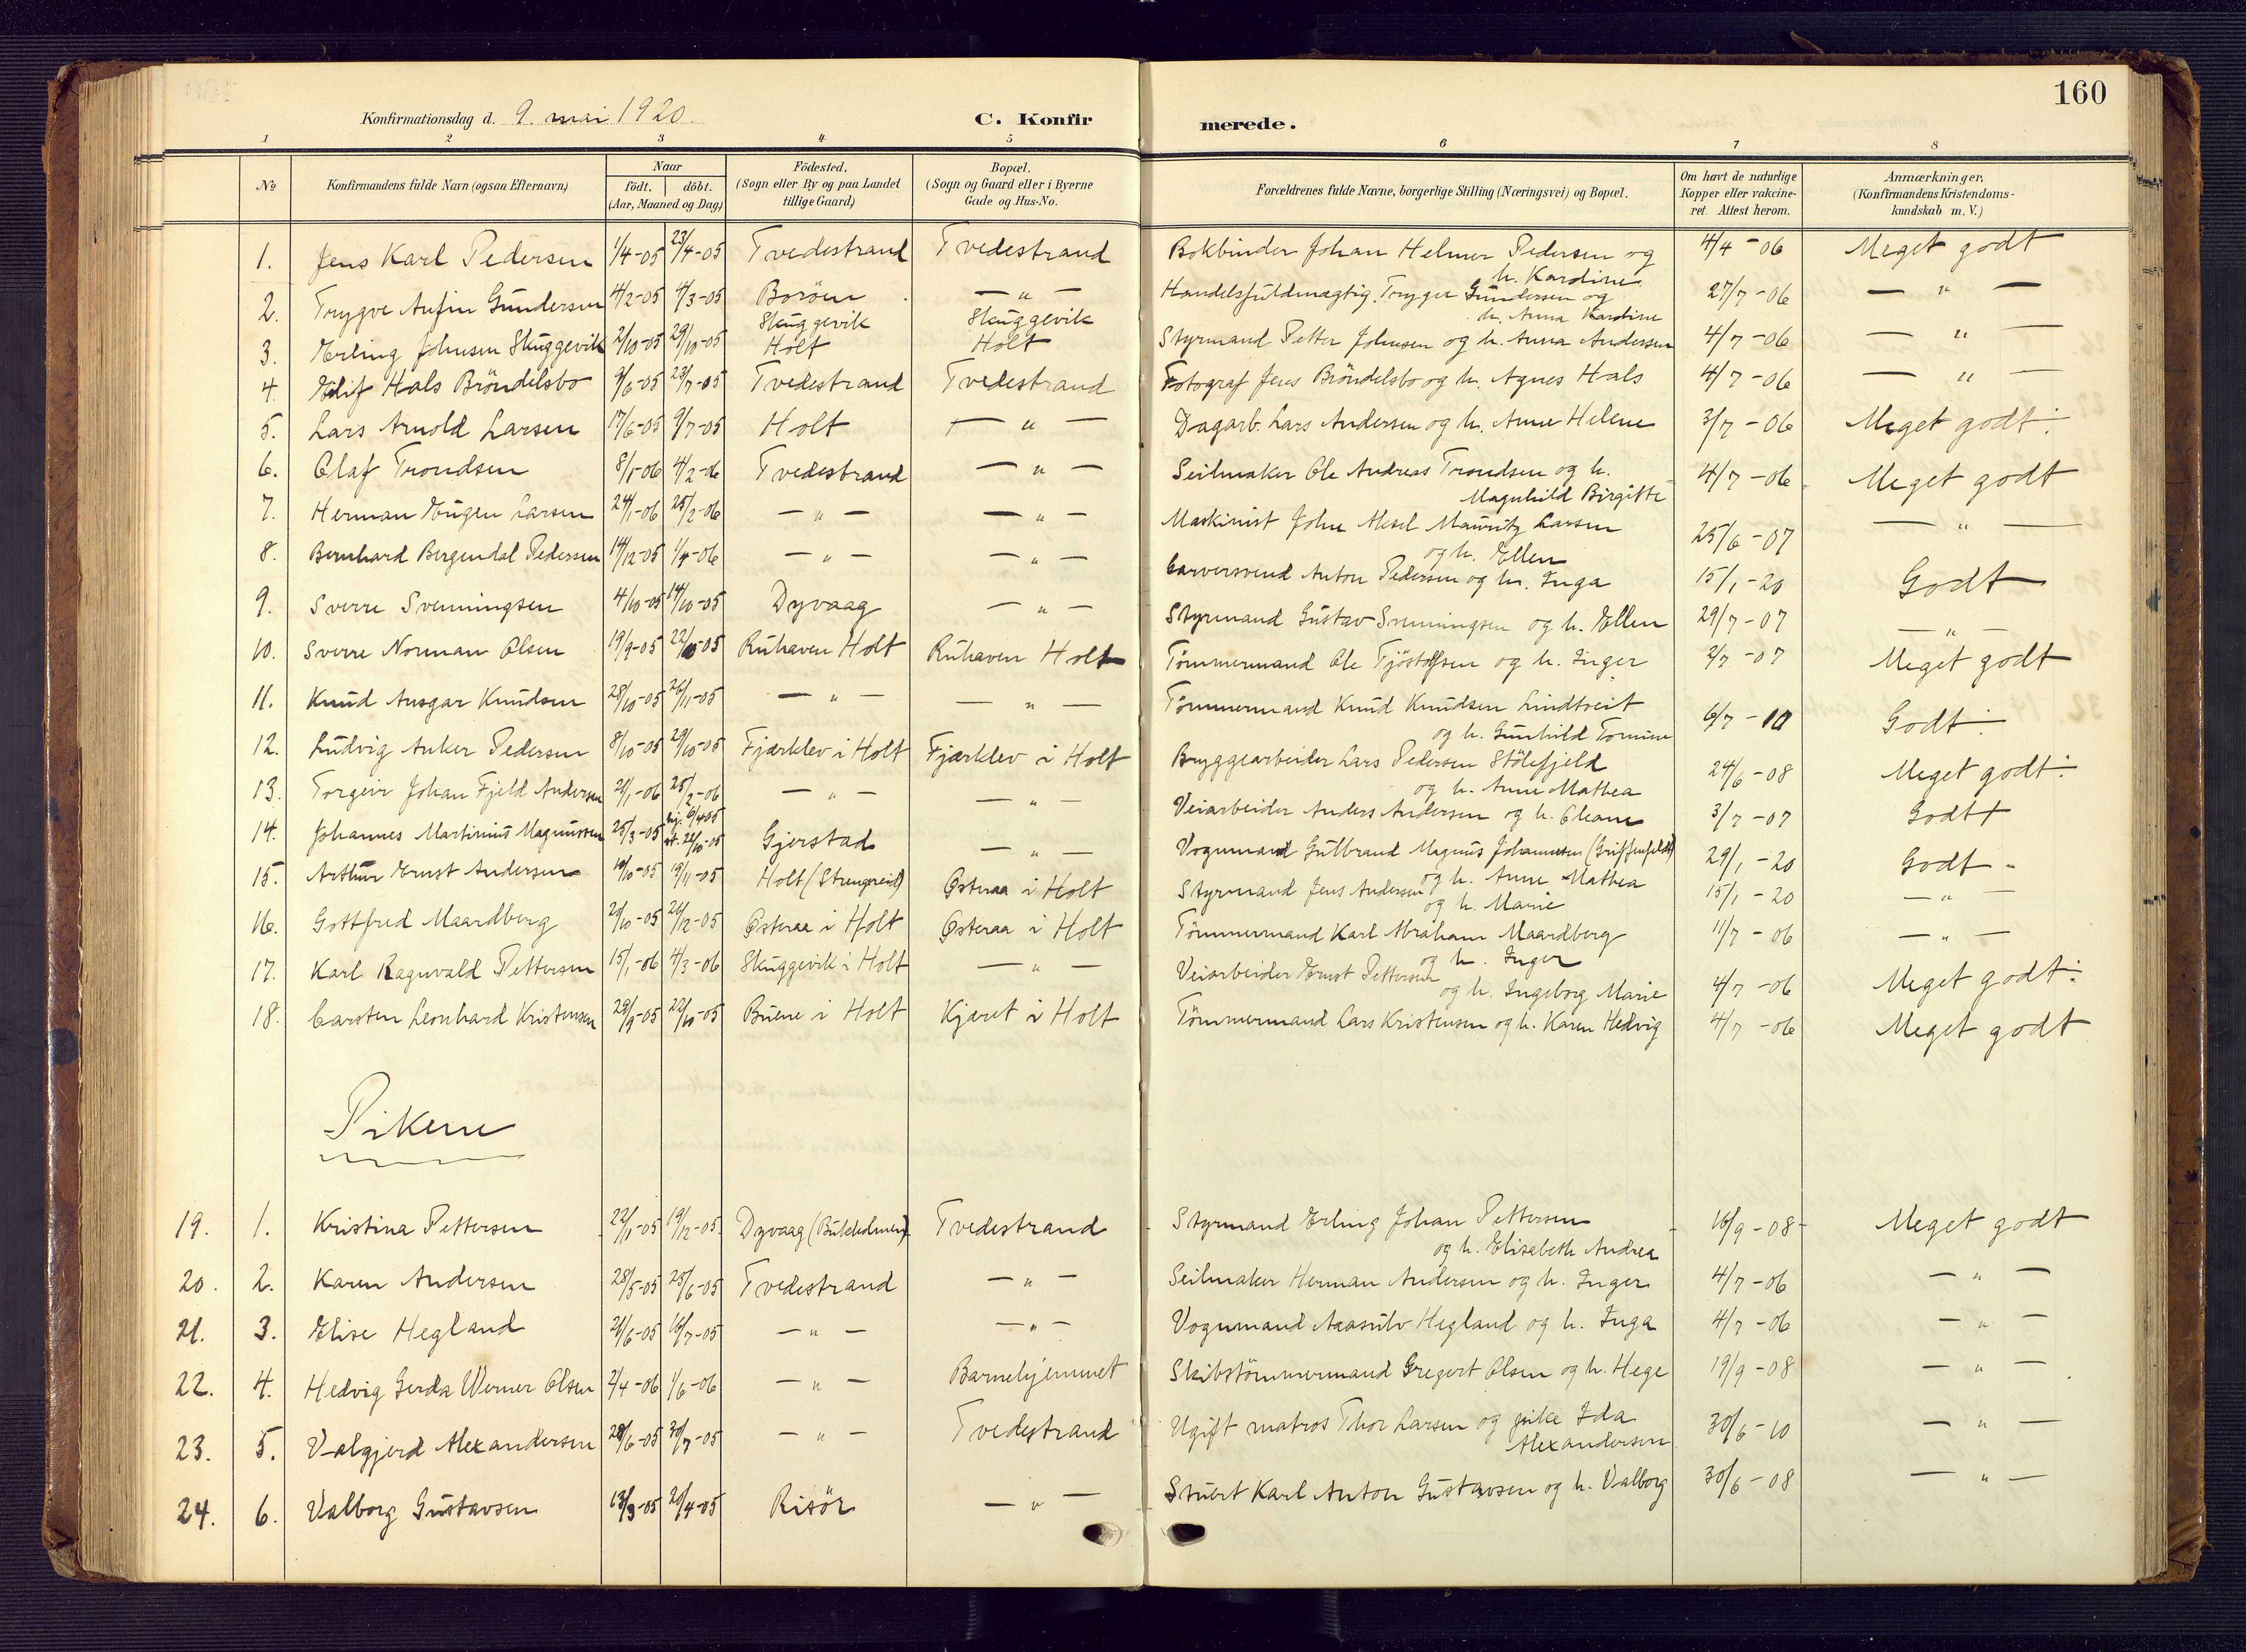 160
Konfirmationsdag d. 9. mai 1920.
C. Konfirmerede.
1 2 3 4 5 6 7 8
No
Konfirmandens fulde Navn (ogsaa Efternavn)
Naar
födt. döbt.
(Aar, Maaned og Dag)
Födested.
(Sogn eller By og paa Landet
tillige Gaard)
Bopæl.
(Sogn og Gaard eller i Byerne
Gade og Hus-No.
Forældrenes fulde Navne, borgerlige Stilling (Næringsvei) og Bopæl.
Om havt de naturlige
Kopper eller vakcine-
ret. Attest herom.
Anmærkninger,
(Konfirmandens Kristendoms-
kundskab m. V.)
1. Jens Karl Pedersen 1/4-05 23/4-05 Tvedestrand Tvedestrand Bokbinder Johan Helmer Pedersen og h. Kardine 4/4-06 Meget godt
2. Trygve Anfin Gundersen 4/2-05 4/3-05 Borøen — " — Handelsfuldmægtig Trygve Gundersen og h. Anna Kardine 27/7-06 — " —
3. Erling Johnsen Skuggevik 2/10-05 29/10-05 Skuggevik Holt Skuggevik Holt Styrmand Petter Johnsen og h. Anna Andersen 4/7-06 — " —
4. Eilif Hals Bröndelsbo 9/6-05 23/7-05 Tvedestrand Tvedestrand Fotograf Jens Bröndelsbo og h. Agnes Hals 4/7-06 — " —
5. Lars Arnold Larsen 17/6-05 9/7-05 Holt — " — Dagarb. Lars Andersen og h. Anne Helene 3/7-06 Meget godt ÷
6. Olaf Trondsen 8/1-06 4/2-06 Tvedestrand — " — Seilmaker Ole Andreas Trondsen og h. Magnhild Birgitte 4/7-06 Meget godt
7. Herman Eugen Larsen 24/1-06 25/2-06 — " — — " — Maskinist John Aksel Mauritz Larsen og h. Ellen 25/6-07 — " —
8. Bernhard Bergendal Pedersen 14/12-05 1/4-06 — " — — " — Garversvend Anton Pedersen og h. Inga 15/1-20 Godt
9. Sverre Svenningsen 4/10-05 14/10-05 Dyvaag — " — Styrmand Gustav Svenningsen og h. Ellen 29/7-07 — " —
10. Sverre Norman Olsen 19/9-05 22/10-05 Ruhaven Holt Ruhaven Holt Tömmermand Ole Tjöstolfsen og h. Inger 2/7-07 Meget godt
11. Knud Ansgar Knudsen 28/10-05 26/11-05 — " — — " — Tömmermand Knud Knudsen Lindtveit og h. Gunhild Tomine 6/7-10 Godt ÷
12. Ludvig Anker Pedersen 8/10-05 29/10-05 Fjærklev i Holt Fjærklev i Holt Bryggearbeider Lars Pedersen Stölefjeld og h. Anne Mathea 24/6-08 Meget godt ÷
13. Torgeir Johan Fjeld Andersen 21/1-06 25/2-06 — " — — " — Veiarbeider Anders Andersen og h. Oleane 3/7-07 Godt +
14. Johannes Martinius Magnussen 25/3-05 hj. 6/4 05 st. 22/10-05 Gjerstad — " — Vognmand Gulbrand Magnus Johannesen (Griffenfeldt) og h. Anne Mathea 29/1-20 Godt -
15. Arthur Ernst Andersen 10/10-05 19/11-05 Holt (Strengereid) Østeraa i Holt Styrmand Jens Andersen og h. Marie 15/1-20 — " —
16. Gottfred Maardberg 20/10-05 26/12-05 Østeraa i Holt Østeraa i Holt Tömmermand Karl Abraham Maardberg og h. Inger 11/7-06 — " —
17. Karl Ragnvald Pettersen 15/1-06 4/3-06 Skuggevik i Holt — " — Veiarbeider Ernst Pettersen og h. Ingeborg Marie 4/7-06 Meget godt ÷
18. Carsten Leonhard Kristensen 29/9-05 22/10-05 Buene i Holt Kjæret i Holt Tömmermand Lars Kristensen og h. Karen Hedvig 4/7-06 Meget godt
Pikene
19. 1. Kristina Pettersen 22/11-05 19/12-05 Dyvaag (Bukholmen) Tvedestrand Styrmand Erling Johan Pettersen og h. Elisabeth Andrea 16/9-08 Meget godt
20. 2. Karen Andersen 28/5-05 25/6-05 Tvedestrand — " — Seilmaker Herman Andersen og h. Inger 4/7-06 — " —
21. 3. Elise Hegland 21/6-05 16/7-05 — " — — " — Vognmand Aasulv Hegland og h. Inga 4/7-06 — " —
22. 4. Hedvig Gerda Werner Olsen 2/4-06 1/6-06 — " — Barnehjemmet Skibstömmermand Gregert Olsen og h. Hege 19/9-08 — " —
23. 5. Valgjerd Alexandersen 28/6-05 30/7-05 — " — Tvedestrand Ugift matros Thor Larsen og pike Ida Alexandersen 30/6-10 — " —
24. 6. Valborg Gustavsen 13/3-05 20/4-05 Risör — " — Stuert Karl Anton Gustavsen og h. Valborg 30/6-08 — " —